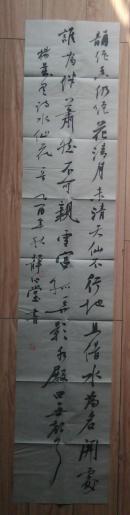 韻絕香仍絕花清月未清天仙不行地且借水為名開處
誰為伴蕭然不可親雪宮孤弄影水殿四無人
楊萬里詩水仙花